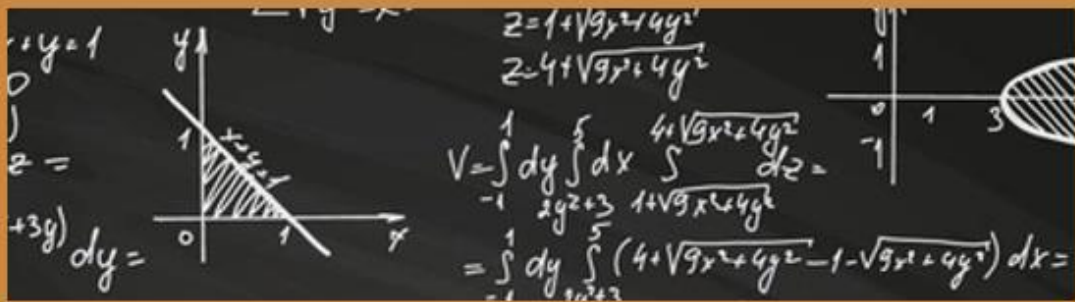 +y=1
0
)
z =
+3y) dy=
y
1
x+y=1
0
1
x
z=1+√9x²+4y²
z=4+√9x²+4y²
V=∫₋₁¹ dy ∫_{2y²+3}^5 dx ∫_{1+√9x²+4y²}^{4+√9x²+4y²} dz=
=∫₋₁¹ dy ∫_{2y²+3}^5 (4+√9x²+4y²-1-√9x²+4y²) dx=
1
0
1
3
-1